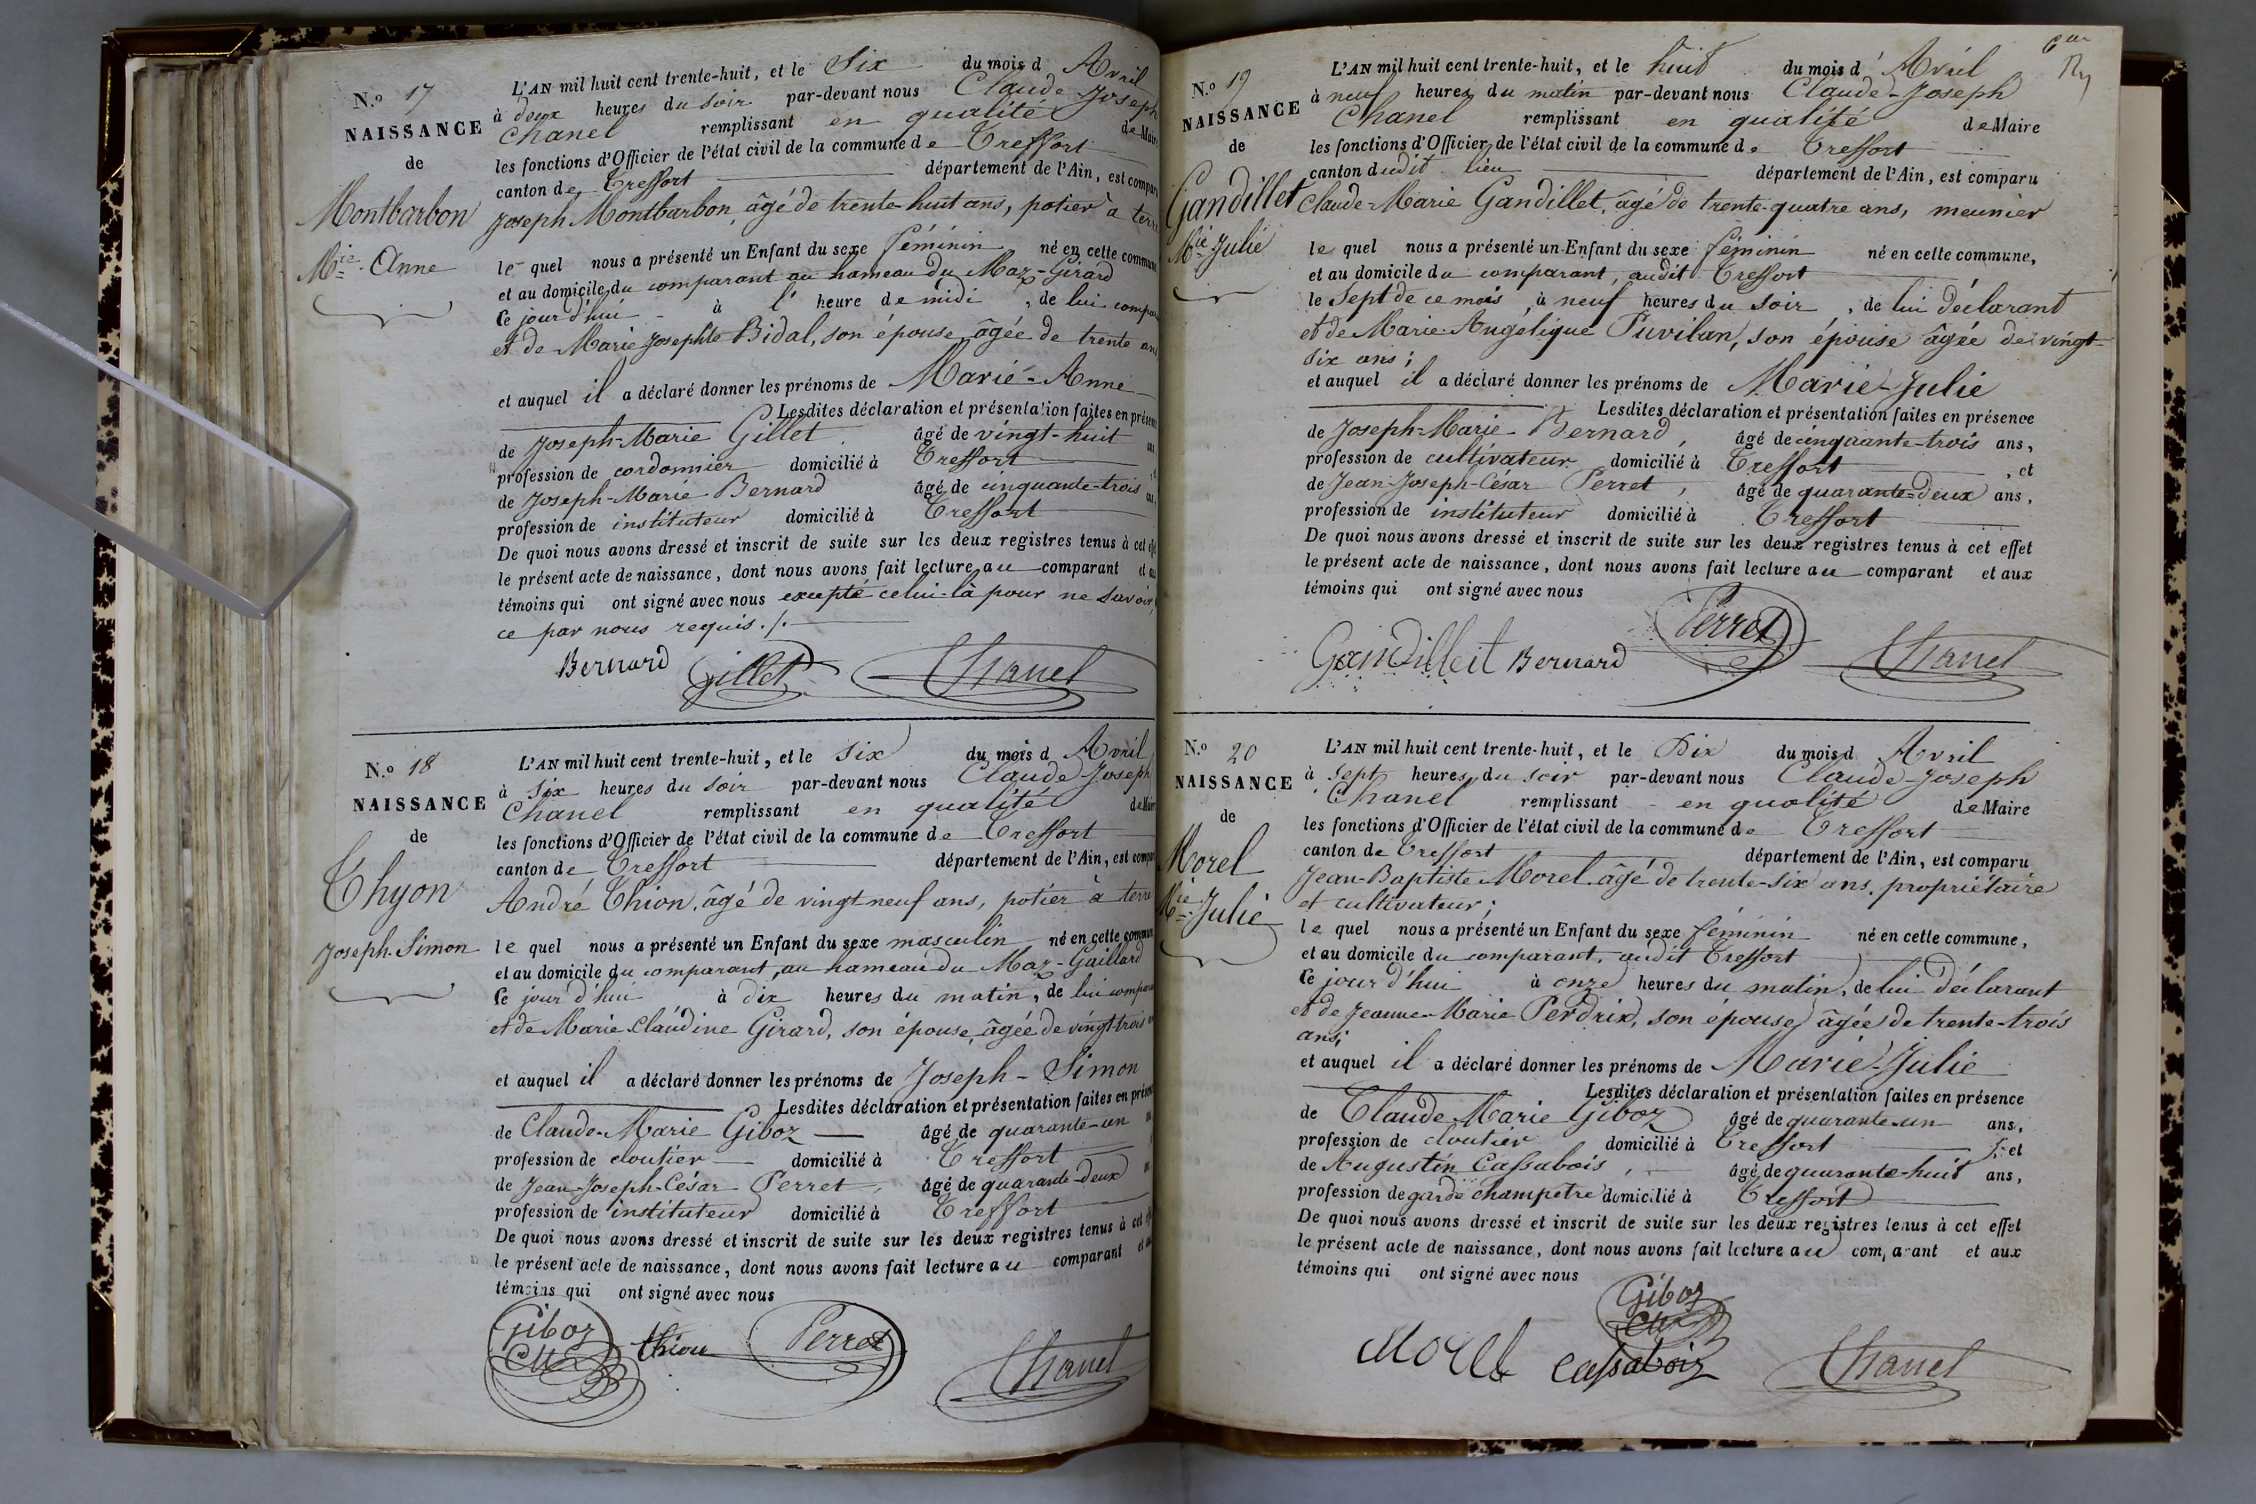 N.o 17
NAISSANCE
de
Montbarbon
Mrie Anne
L'AN mil huit cent trente-huit, et le Six du mois d Avril
à deux heures du soir par-devant nous Claude-Joseph
Chanel remplissant en qualité de Maire
les fonctions d'Officier de l'état civil de la commune de Treffort
canton de Treffort département de l'Ain, est comparu
Joseph Montbarbon, âgé de trente-huit ans, potier à terre
le quel nous a présenté un Enfant du sexe féminin né en cette commune
et au domicile du comparant au hameau du Maz-Girard
Ce jour d'hui à l' heure de midi, de lui compa
et de Marie Josephte Bidal, son épouse, âgée de trente ans
et auquel il a déclaré donner les prénoms de Marie-Anne
Lesdites déclaration et présentation faites en présen
de Joseph-Marie Gillet âgé de vingt-huit ans
profession de cordonnier domicilié à Treffort
de Joseph-Marie Bernard âgé de cinquante-trois ans,
profession de instituteur domicilié à Treffort
De quoi nous avons dressé et inscrit de suite sur les deux registres tenus à cet effet
le présent acte de naissance, dont nous avons fait lecture au comparant et au
témoins qui ont signé avec nous excepté celui-là pour ne savoir,
ce par nous requis ./.
Bernard Gillet Chanel
N.o 18
NAISSANCE
de
Thyon
Joseph-Simon
L'AN mil huit cent trente-huit, et le six du mois d Avril
à six heures du soir par-devant nous Claude-Joseph
Chanel remplissant en qualité de Maire
les fonctions d'Officier de l'état civil de la commune de Treffort
canton de Treffort département de l'Ain, est compar
André Thion, âgé de vingt neuf ans, potier à terre
le quel nous a présenté un Enfant du sexe masculin né en cette commun
et au domicile du comparant, au hameau du Maz-Gaillard
Ce jour d'hui à dix heures du matin, de lui compara
et de Marie Claudine Girard, son épouse, âgée de vingt-trois
et auquel il a déclaré donner les prénoms de Joseph-Simon
Lesdites déclaration et présentation faites en présen
de Claude-Marie Giboz âgé de quarante-un
profession de cloutier domicilié à Treffort
de Jean-Joseph-César Perret, âgé de quarante-deux
profession de instituteur domicilié à Treffort
De quoi nous avons dressé et inscrit de suite sur les deux registres tenus à cet
le présent acte de naissance, dont nous avons fait lecture au comparant et
témoins qui ont signé avec nous
Giboz CM thion Perret Chanel
N.o 19
NAISSANCE
de
Gandillet
Mie Julie
L'AN mil huit cent trente-huit, et le huit du mois d' Avril
à neuf heures du matin par-devant nous Claude-Joseph
Chanel remplissant en qualité de Maire
les fonctions d'Officier de l'état civil de la commune de Treffort
canton dudit lieu département de l'Ain, est comparu
Claude-Marie Gandillet, âgé de trente-quatre ans, meunier
le quel nous a présenté un Enfant du sexe féminin né en cette commune,
et au domicile du comparant, audit Treffort
le Sept de ce mois à neuf heures du soir, de lui déclarant
et de Marie-Angélique Puvilan, son épouse âgée de vingt-
six ans;
et auquel il a déclaré donner les prénoms de Marie-Julie
Lesdites déclaration et présentation faites en présence
de Joseph-Marie Bernard, âgé de cinquante-trois ans,
profession de cultivateur domicilié à Treffort, et
de Jean-Joseph-César Perret, âgé de quarante-deux ans,
profession de instituteur domicilié à Treffort
De quoi nous avons dressé et inscrit de suite sur les deux registres tenus à cet effet
le présent acte de naissance, dont nous avons fait lecture au comparant et aux
témoins qui ont signé avec nous
Gandilleit Bernard Perret Chanel
N.o 20
NAISSANCE
de
Morel
Mie Julie
L'AN mil huit cent trente-huit, et le Dix du mois d Avril
à sept heures du soir par-devant nous Claude-Joseph
Chanel remplissant en qualité de Maire
les fonctions d'Officier de l'état civil de la commune de Treffort
canton de Treffort département de l'Ain, est comparu
Jean-Baptiste Morel, âgé de trente-six ans, propriétaire
et cultivateur;
le quel nous a présenté un Enfant du sexe féminin né en cette commune,
et au domicile du comparant, audit Treffort
Ce jour d'hui à onze heures du matin, de lui déclarant
et de Jeanne-Marie Perdrix, son épouse, âgée de trente-trois
ans;
et auquel il a déclaré donner les prénoms de Marie-Julie
Lesdites déclaration et présentation faites en présence
de Claude Marie Giboz âgé de quarante-un ans,
profession de cloutier domicilié à Treffort, et
de Augustin Cassabois, âgé de quarante-huit ans,
profession de garde champetre domicilié à Treffort
De quoi nous avons dressé et inscrit de suite sur les deux registres tenus à cet effet
le présent acte de naissance, dont nous avons fait lecture au comparant et aux
témoins qui ont signé avec nous
Giboz CM
Morel Cassaboiz Chanel